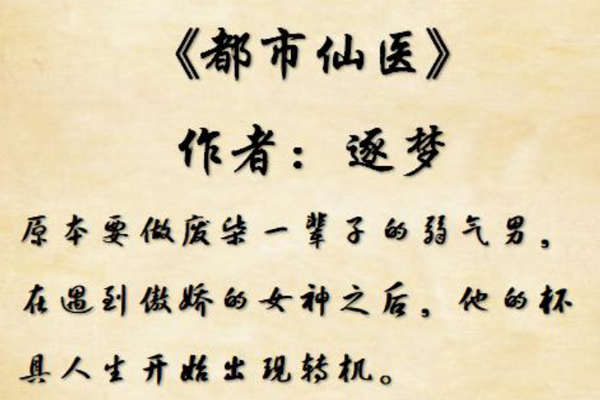 《都市仙医》
作者：逐梦
原本要做废柴一辈子的弱气男，
在遇到傲娇的女神之后，他的杯
具人生开始出现转机。